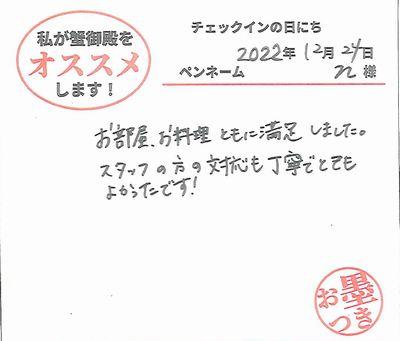 私が蟹御殿を
オススメ
します！
チェックインの日にち
2022年 12月 24日
ペンネーム n 様
お部屋、お料理 ともに満足 しました。
スタッフの方の対応も丁寧でとても
よかったです!
お墨つき